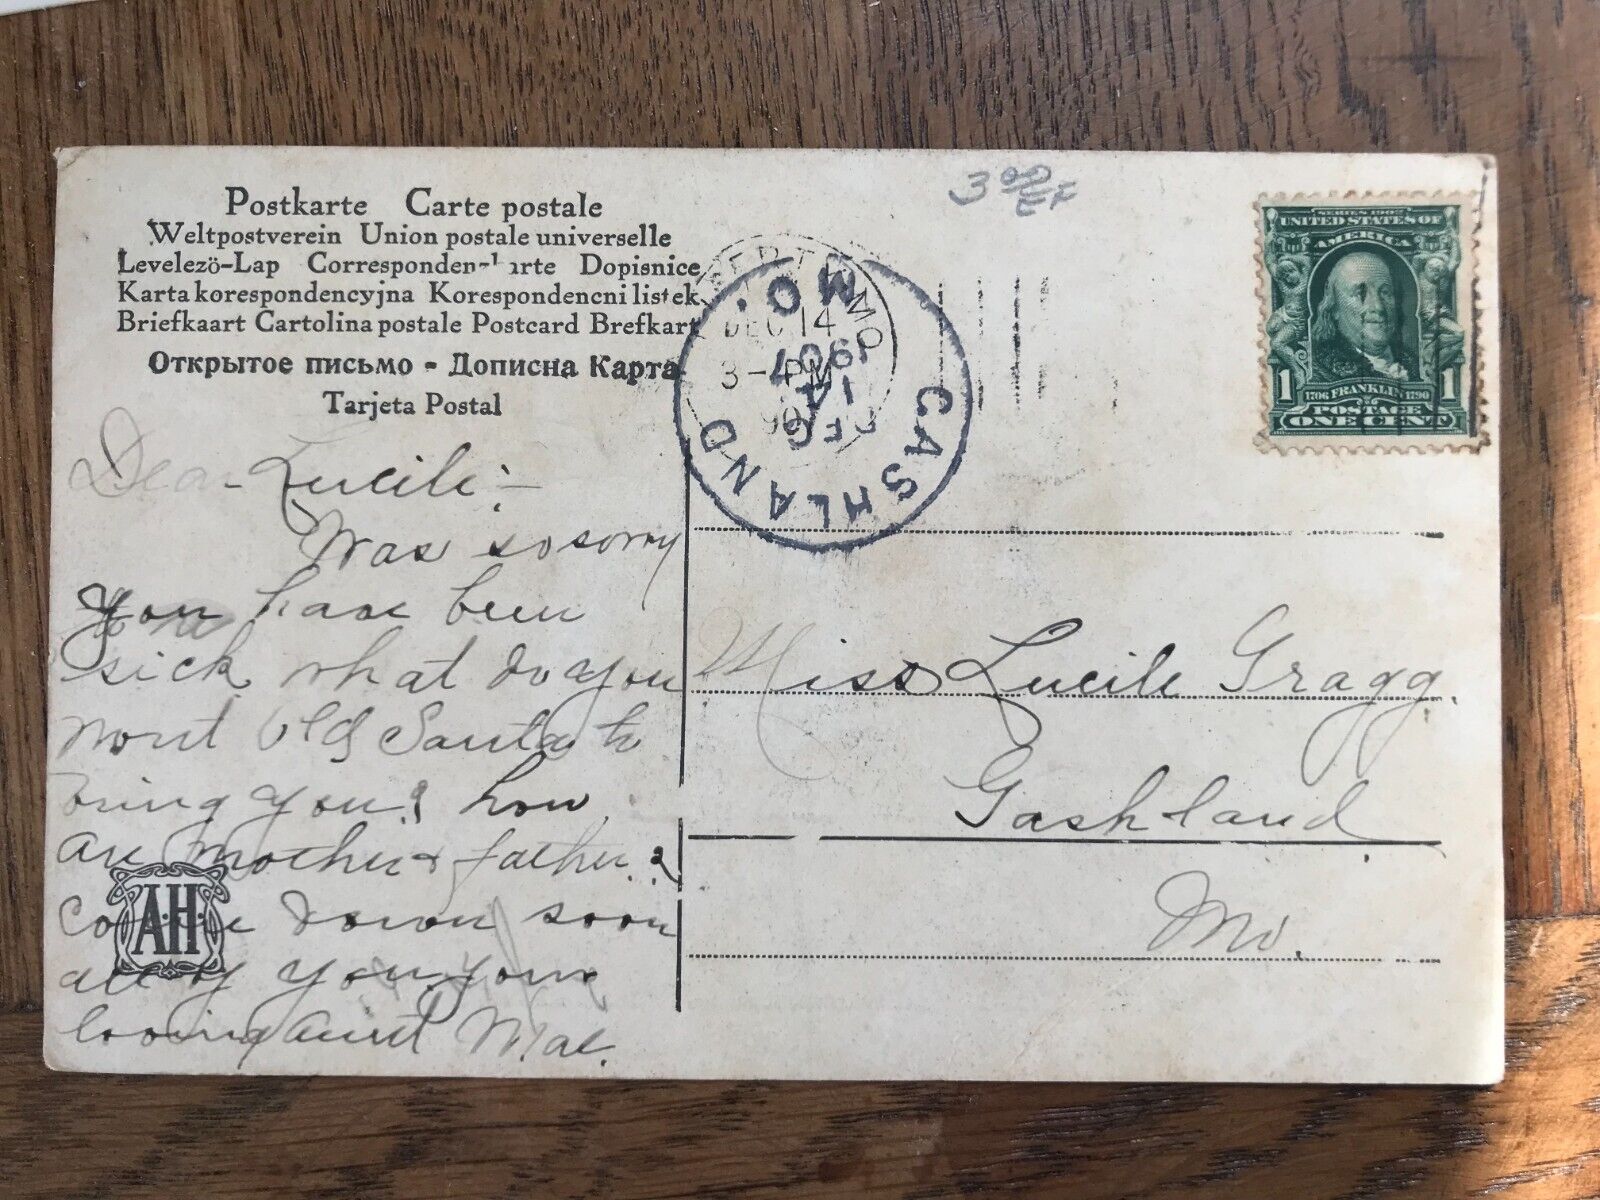 Postkarte Carte postale
Weltpostverein Union postale universelle
Levelező-Lap Corresponden- arte Dopisnice
Karta korespondencyjna Korespondencni listek
Briefkaart Cartolina postale Postcard Brefkart
Открытое письмо - Дописна Карта
Tarjeta Postal
3 00 EF
SERIES 1902
UNITED STATES OF
AMERICA
1 1706 FRANKLIN 1790 1
POSTAGE
ONE CENT
DEC 14
3-PM
190
GASHLAND MO.
DEC
14
1907
Dear Lucile:-
Was so sorry
you have been
sick what do you
wont old Santa to
bring you? how
are mother & father?
Come down soon
all of you. your
loving aunt Mae.
A.H.
Miss Lucile Gragg.
Gashland
Mo.